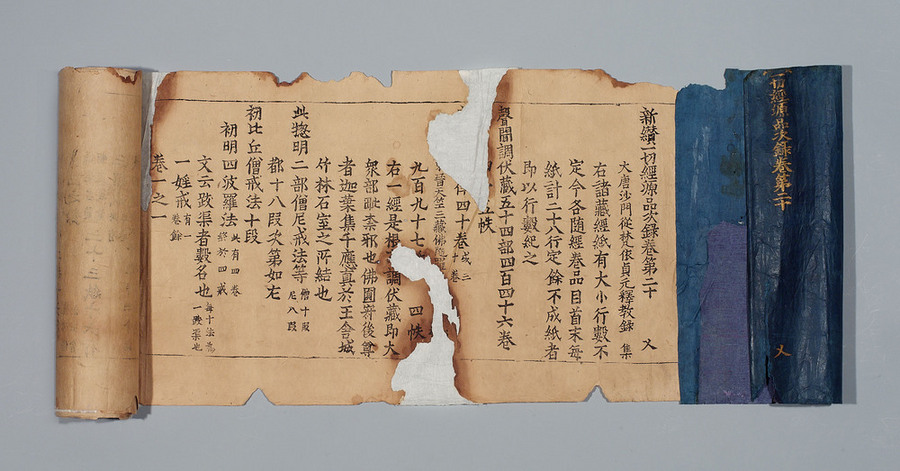 一切經源品次錄卷第二十
乂
新纘一切經源品次錄卷第二十 乂
大唐沙門從梵依貞元釋教錄 集
右諸藏經紙有大小行數不
定今各隨經卷品目首末每
紙計二十八行定餘不成紙者
即以行數紀之
聲聞調伏藏五十四部四百四十六卷
五帙
四十卷 或三十卷
晉天竺三藏佛
九百九十七 四帙
右一經是根 調伏藏即大
衆部毗柰耶也佛圓寂後尊
者迦葉集千應真於王舍城
竹林石室之所結也
此惣明二部僧尼戒法等 僧十段 尼八段
都十八段次第如左
初比丘僧戒法十段
初明四波羅法 此有四卷 終於四戒
文云跋渠者數名也 每十法爲一跋渠也
一婬戒 有一卷餘
卷一之一